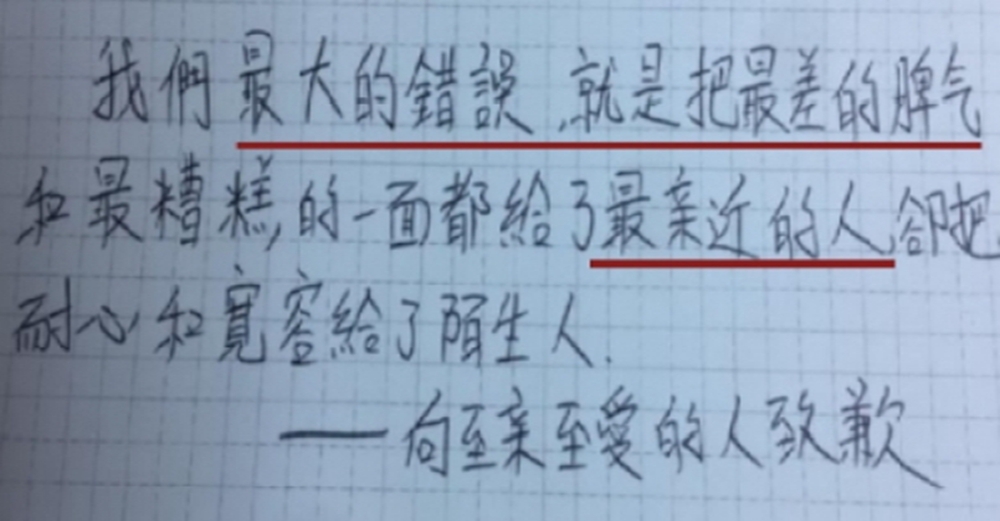 我們最大的錯誤,就是把最差的脾气
和最糟糕的一面都給了最亲近的人,卻把
耐心和寬容給了陌生人.
——向至亲至愛的人致歉